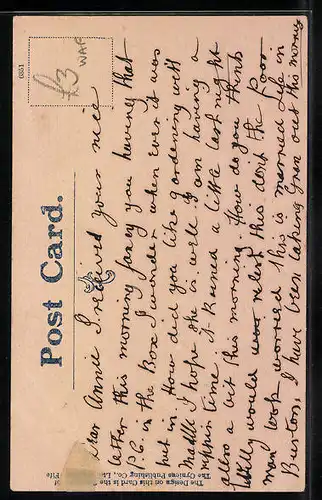 6351
£3
WAR
Post Card.
Dear Annie I received your nice
letter this morning fancy you having that
P.C. in the Box I wonder when ever it was
put in. How did you like gardening with
I hope she is well & am having a
rippin time. It Rained a little last night
& a bit this morning. How do you think
would relish this don't the Poor
man look worried this is married Life in
Burton, I have been taking Gran out this morning
The Design on this Card is the
The Cynicus Publishing Co., Ld.
Fife